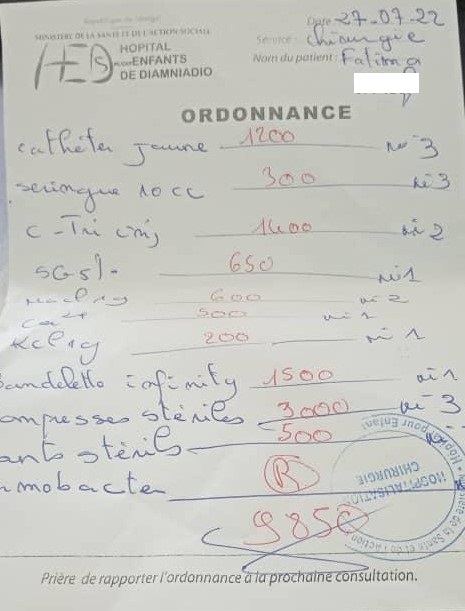 République du Sénégal
MINISTERE DE LA SANTE ET DE L'ACTION SOCIALE
HOPITAL
POUR ENFANTS
DE DIAMNIADIO
Date 27-07-22
Service: Chirurgie
Nom du patient: Fatima
ORDONNANCE
catheter jaune 1200 n° 3
seringue 10 cc 300 n° 3
C-Tri 1400 n° 2
SG5% 650 n° 1
600 n° 2
500 n° 1
Kcl 1g 200 n° 1
andelette infinity 1500 n° 1
ompresses stériles 3000 n° 3
ants stérils 500
mobacter R
9850
HOSPITALISATION
CHIRURGIE
Prière de rapporter l'ordonnance à la prochaine consultation.